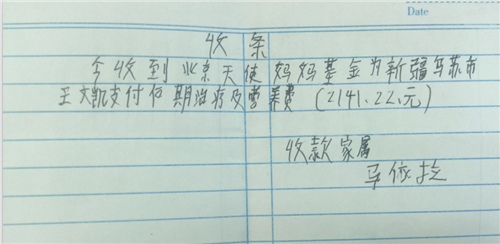 Date
收条
今收到北京天使妈妈基金为新疆乌苏市
王文凯支付后期治疗及营养费(2141.22元)
收款家属